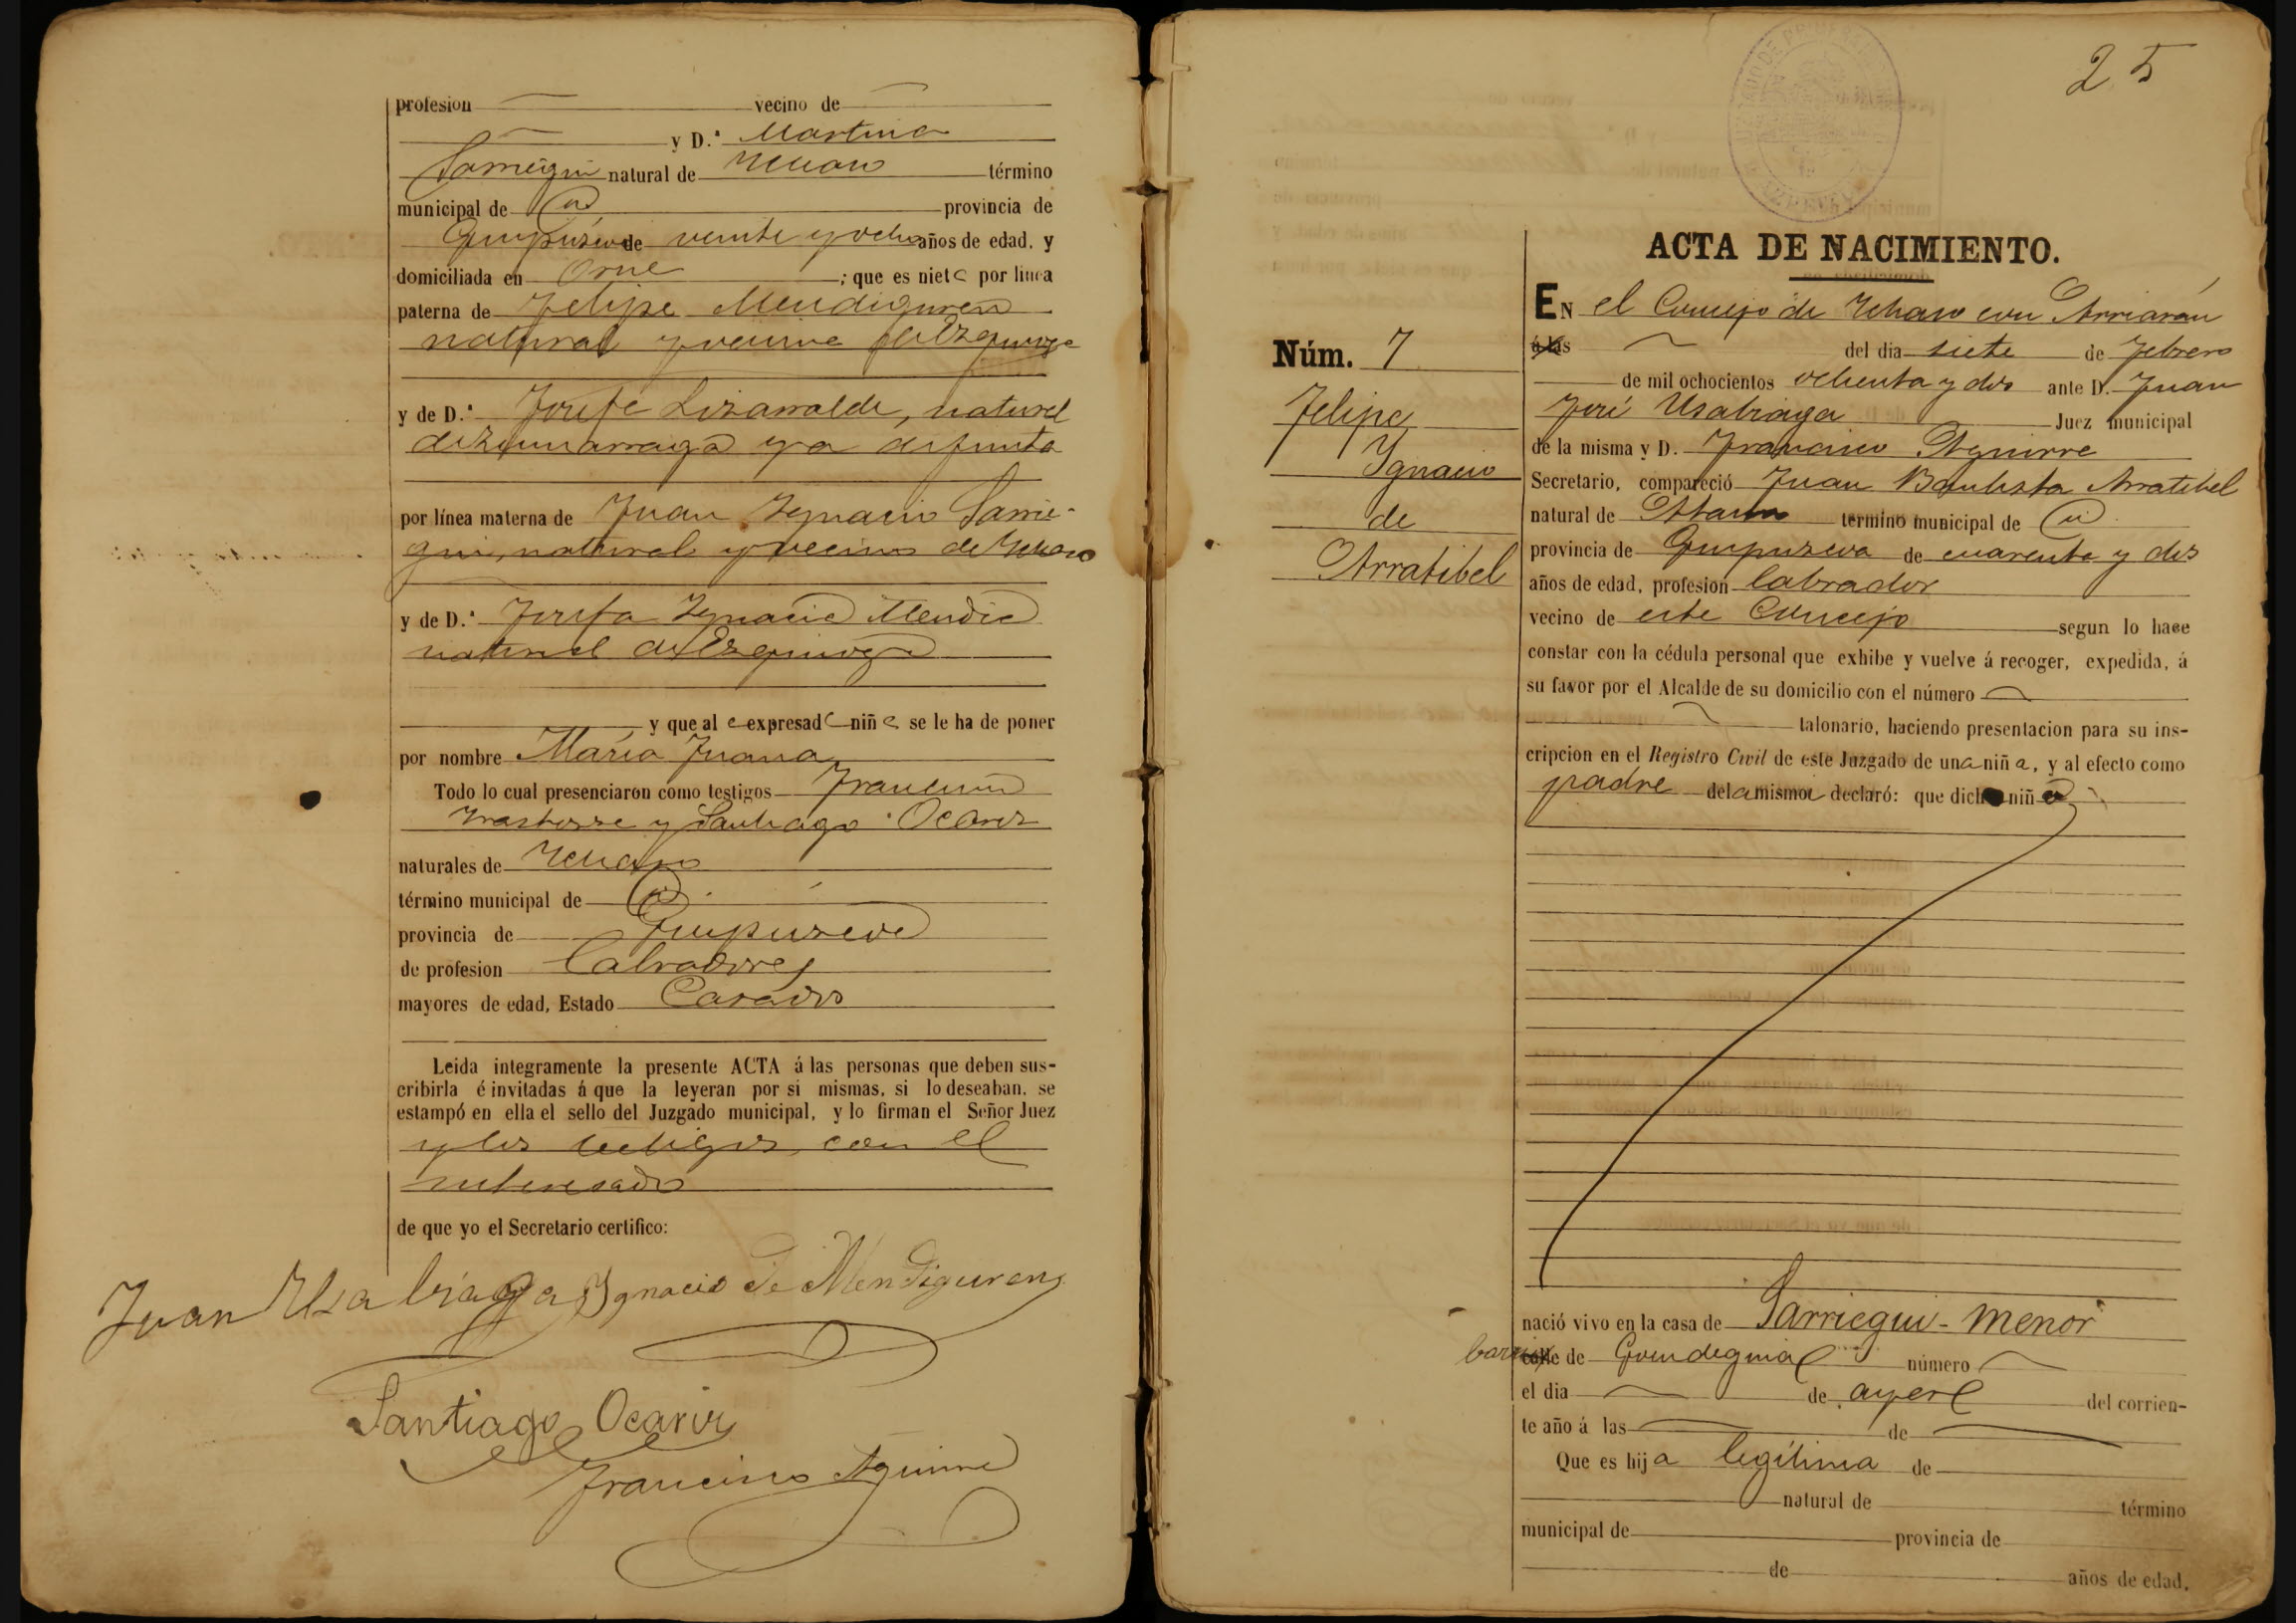 profesion vecino de
y D.ª Martina
Sarriegui natural de Ychaso término
municipal de id provincia de
Guipúzcoa de veinte y ocho años de edad, y
domiciliada en Orue ; que es nieta por línea
paterna de Felipe Mendiguren
natural y vecino de Ezquioga
y de D.ª Josefa Lizarralde, natural
de Zumarraga ya difunta
por línea materna de Juan Ygnacio Sarrie-
gui, natural y vecino de Ychaso
y de D.ª Josefa Ygnacia Mendia
natural de Ezquioga
y que al expresad niña se le ha de poner
por nombre María Juana
Todo lo cual presenciaron como testigos Francisco
Yrastorza y Santiago Ocariz
naturales de Ychaso
término municipal de id
provincia de Guipuzcoa
de profesion Labradores
mayores de edad, Estado Casados
Leida integramente la presente ACTA á las personas que deben sus-
cribirla é invitadas á que la leyeran por si mismas, si lo deseaban, se
estampó en ella el sello del Juzgado municipal, y lo firman el Señor Juez
y los testigos, con el
interesado
de que yo el Secretario certifico:
Juan Usabiaga Ygnacio de Mendiguren
Santiago Ocariz
Francisco Aguirre
25
ACTA DE NACIMIENTO.
Núm. 7
Felipe
Ygnacio
de
Arratibel
EN el Concejo de Ychaso con Arriarán
á las del dia siete de Febrero
de mil ochocientos ochenta y dos ante D. Juan
José Usabiaga Juez municipal
de la misma y D. Francisco Aguirre
Secretario, compareció Juan Bautista Arratibel
natural de término municipal de id
provincia de Guipuzcoa de cuarenta y dos
años de edad, profesion labrador
vecino de este Concejo segun lo hace
constar con la cédula personal que exhibe y vuelve á recoger, expedida, á
su favor por el Alcalde de su domicilio con el número
talonario, haciendo presentacion para su ins-
cripcion en el Registro Civil de este Juzgado de una niña, y al efecto como
padre de la misma declaró: que dich niña
nació vivo en la casa de Sarriegui-menor
barrio calle de número
el dia de ayer del corrien-
te año á las de
Que es hija legítima de
natural de término
municipal de provincia de
de años de edad,